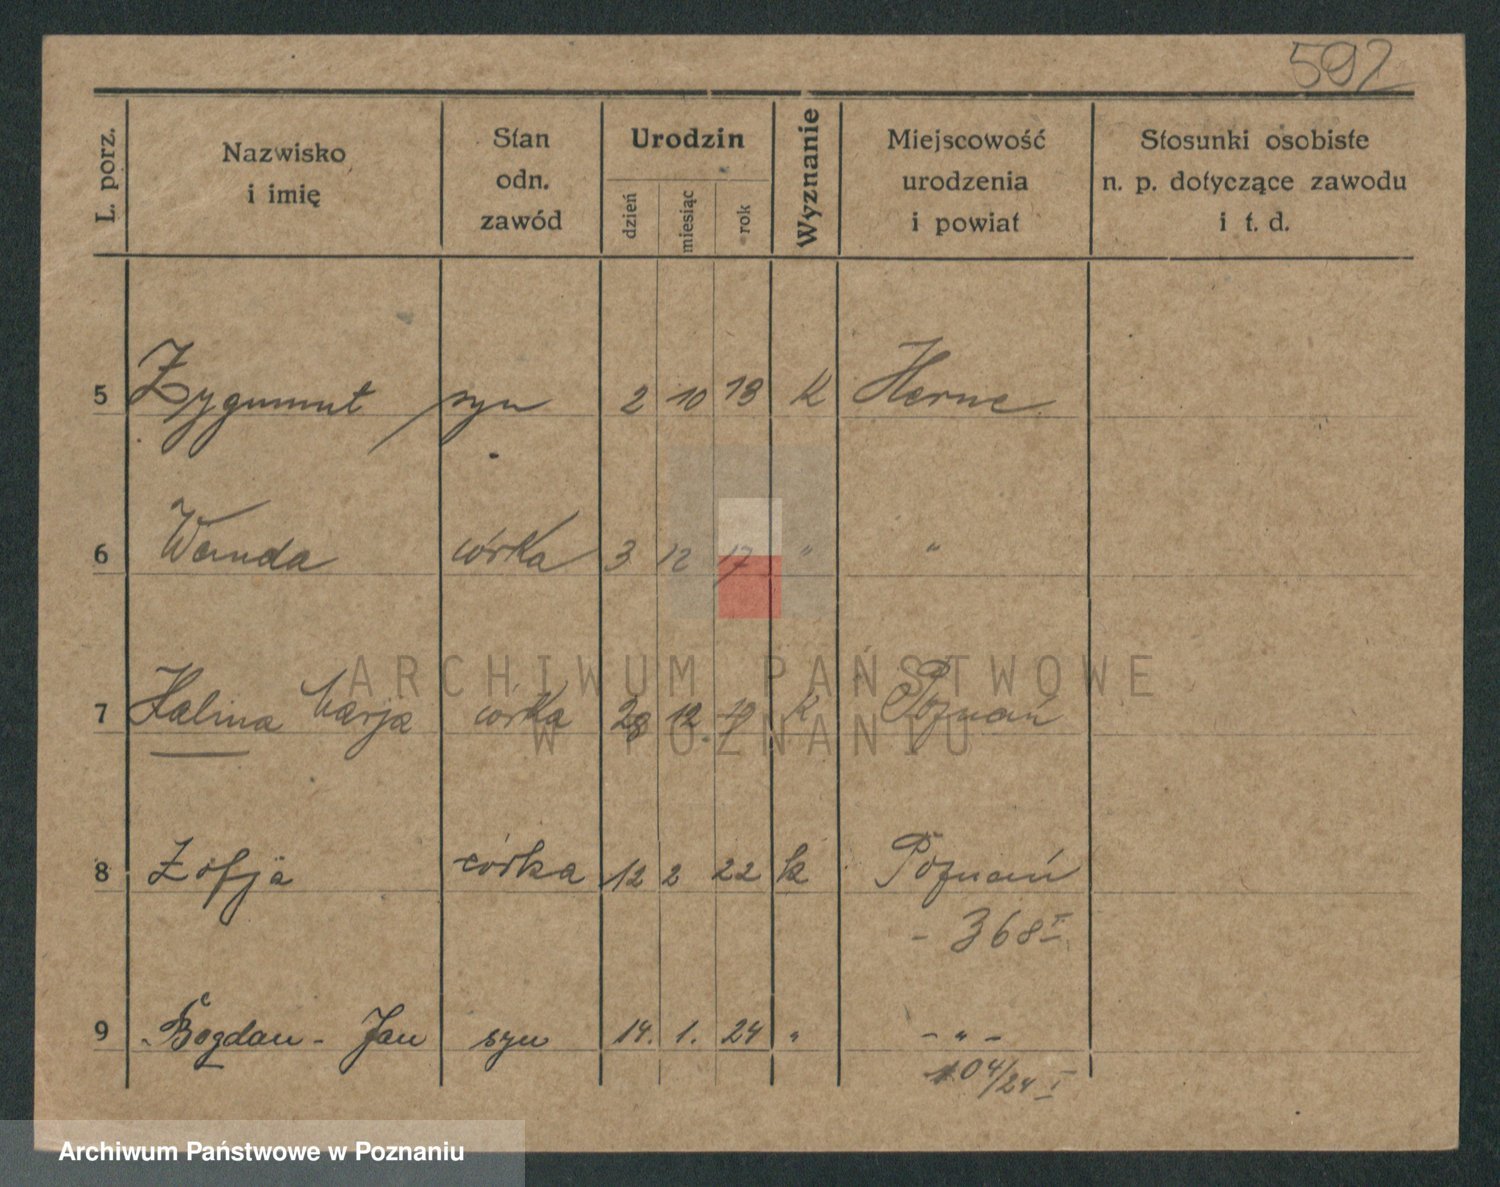 592
L. porz.
Nazwisko
i imię
Stan
odn.
zawód
Urodzin
dzień
miesiąc
rok
Wyznanie
Miejscowość
urodzenia
i powiat
Stosunki osobiste
n. p. dotyczące zawodu
i t. d.
5 Zygmunt syn 2 10 18 K Herne
6 Wanda córka 3 12 17 " "
7 Halina Marja córka 28 12 19 K Poznań
8 Zofja córka 12 2 22 k Poznań
- 368 I
9 Bogdan - Jan syn 14. 1. 24 " - " -
104/24 I
ARCHIWUM PAŃSTWOWE
W POZNANIU
Archiwum Państwowe w Poznaniu